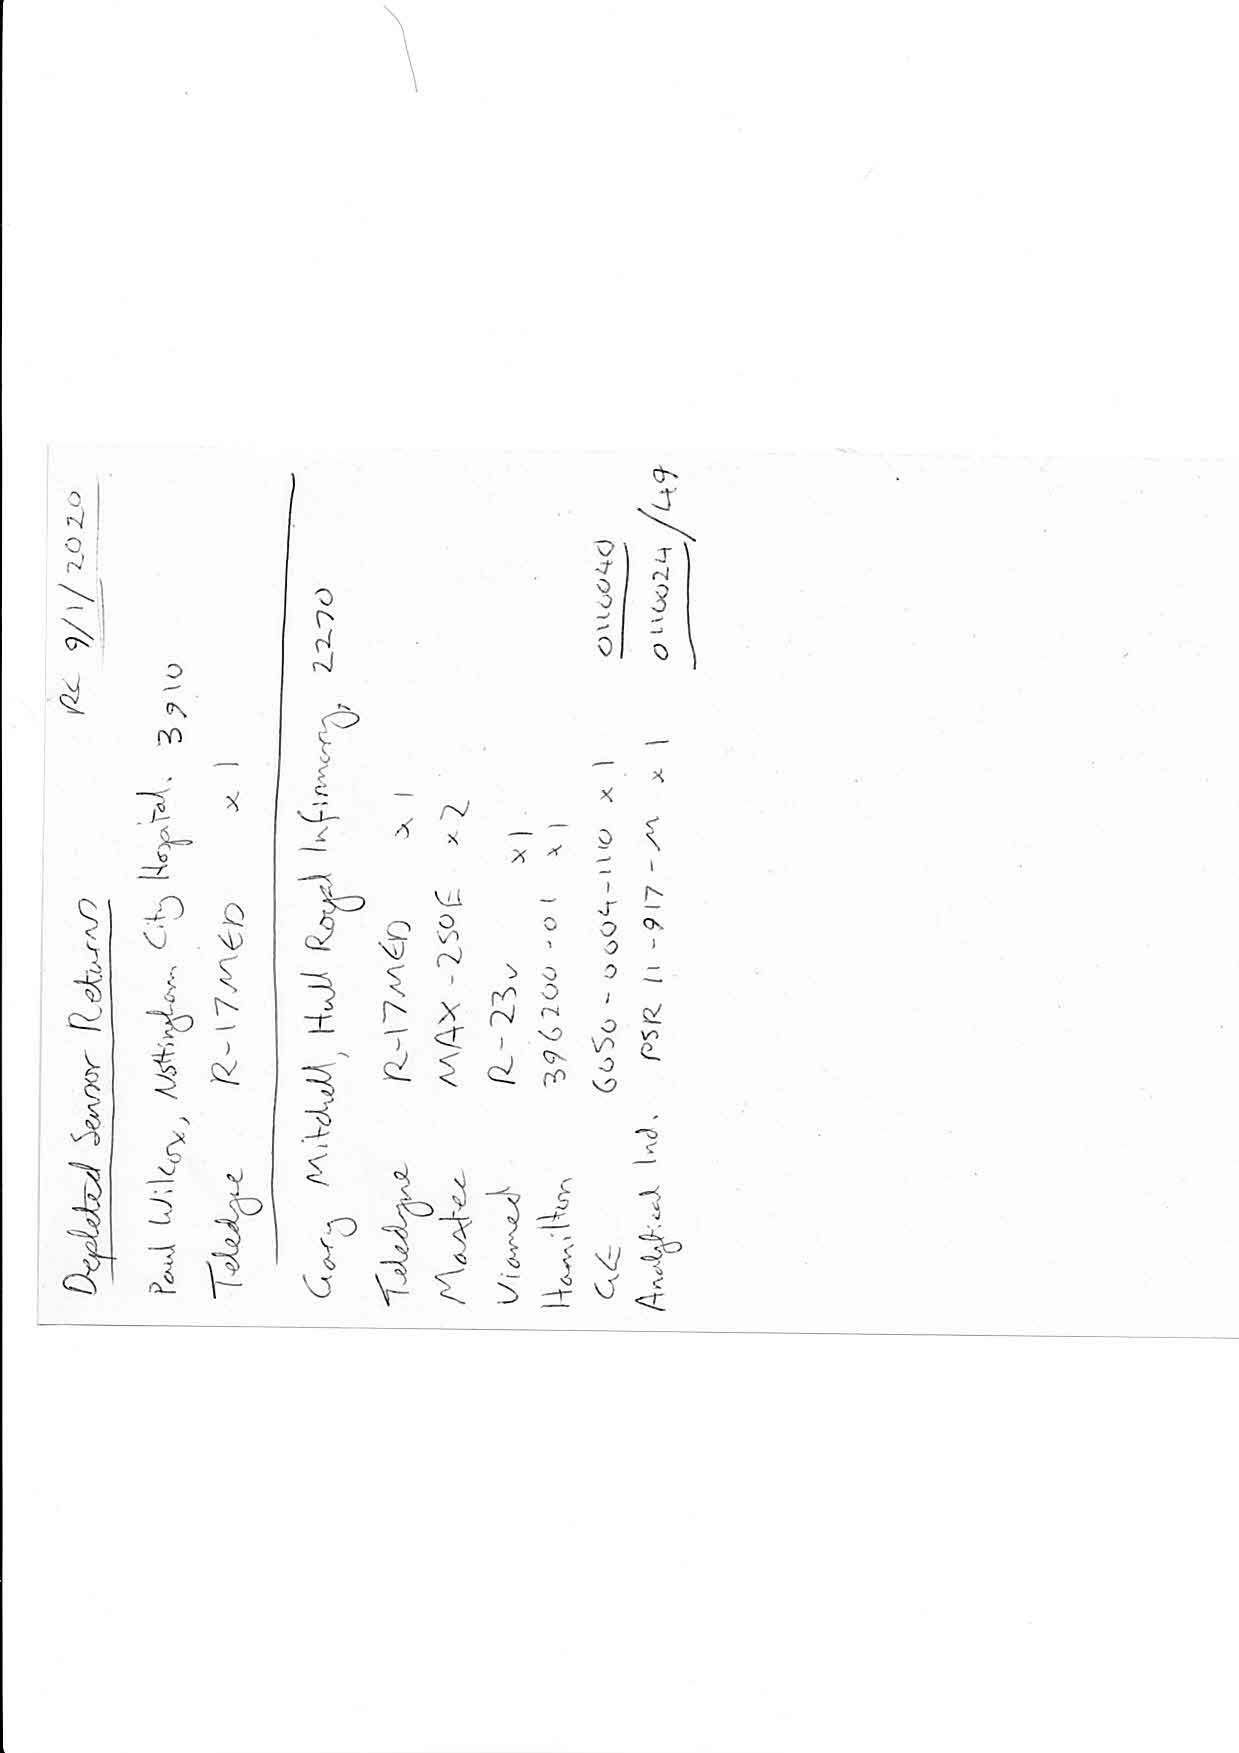 Depleted Sensor Returns RC 9/1/2020
Paul Wilcox, Nottingham City Hospital. 3910
Teledyne R-17MED x1
Gary Mitchell, Hull Royal Infirmary, 2270
Teledyne R-17MED x1
Maxtec MAX-250E x2
Viamed R-23v x1
Hamilton 396200-01 x1
GE 6050-0004-110 x1 0110040
Analytical Ind. PSR 11-917-M x1 0110024/49